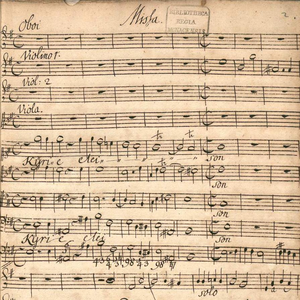 Missa.
BIBLIOTHECA
REGIA
MONACENSIS
2.
Oboi
Violino 1.
Viol: 2
Viola.
Kyri-e elei
son
son
Kyri-e elei
son
son
solo